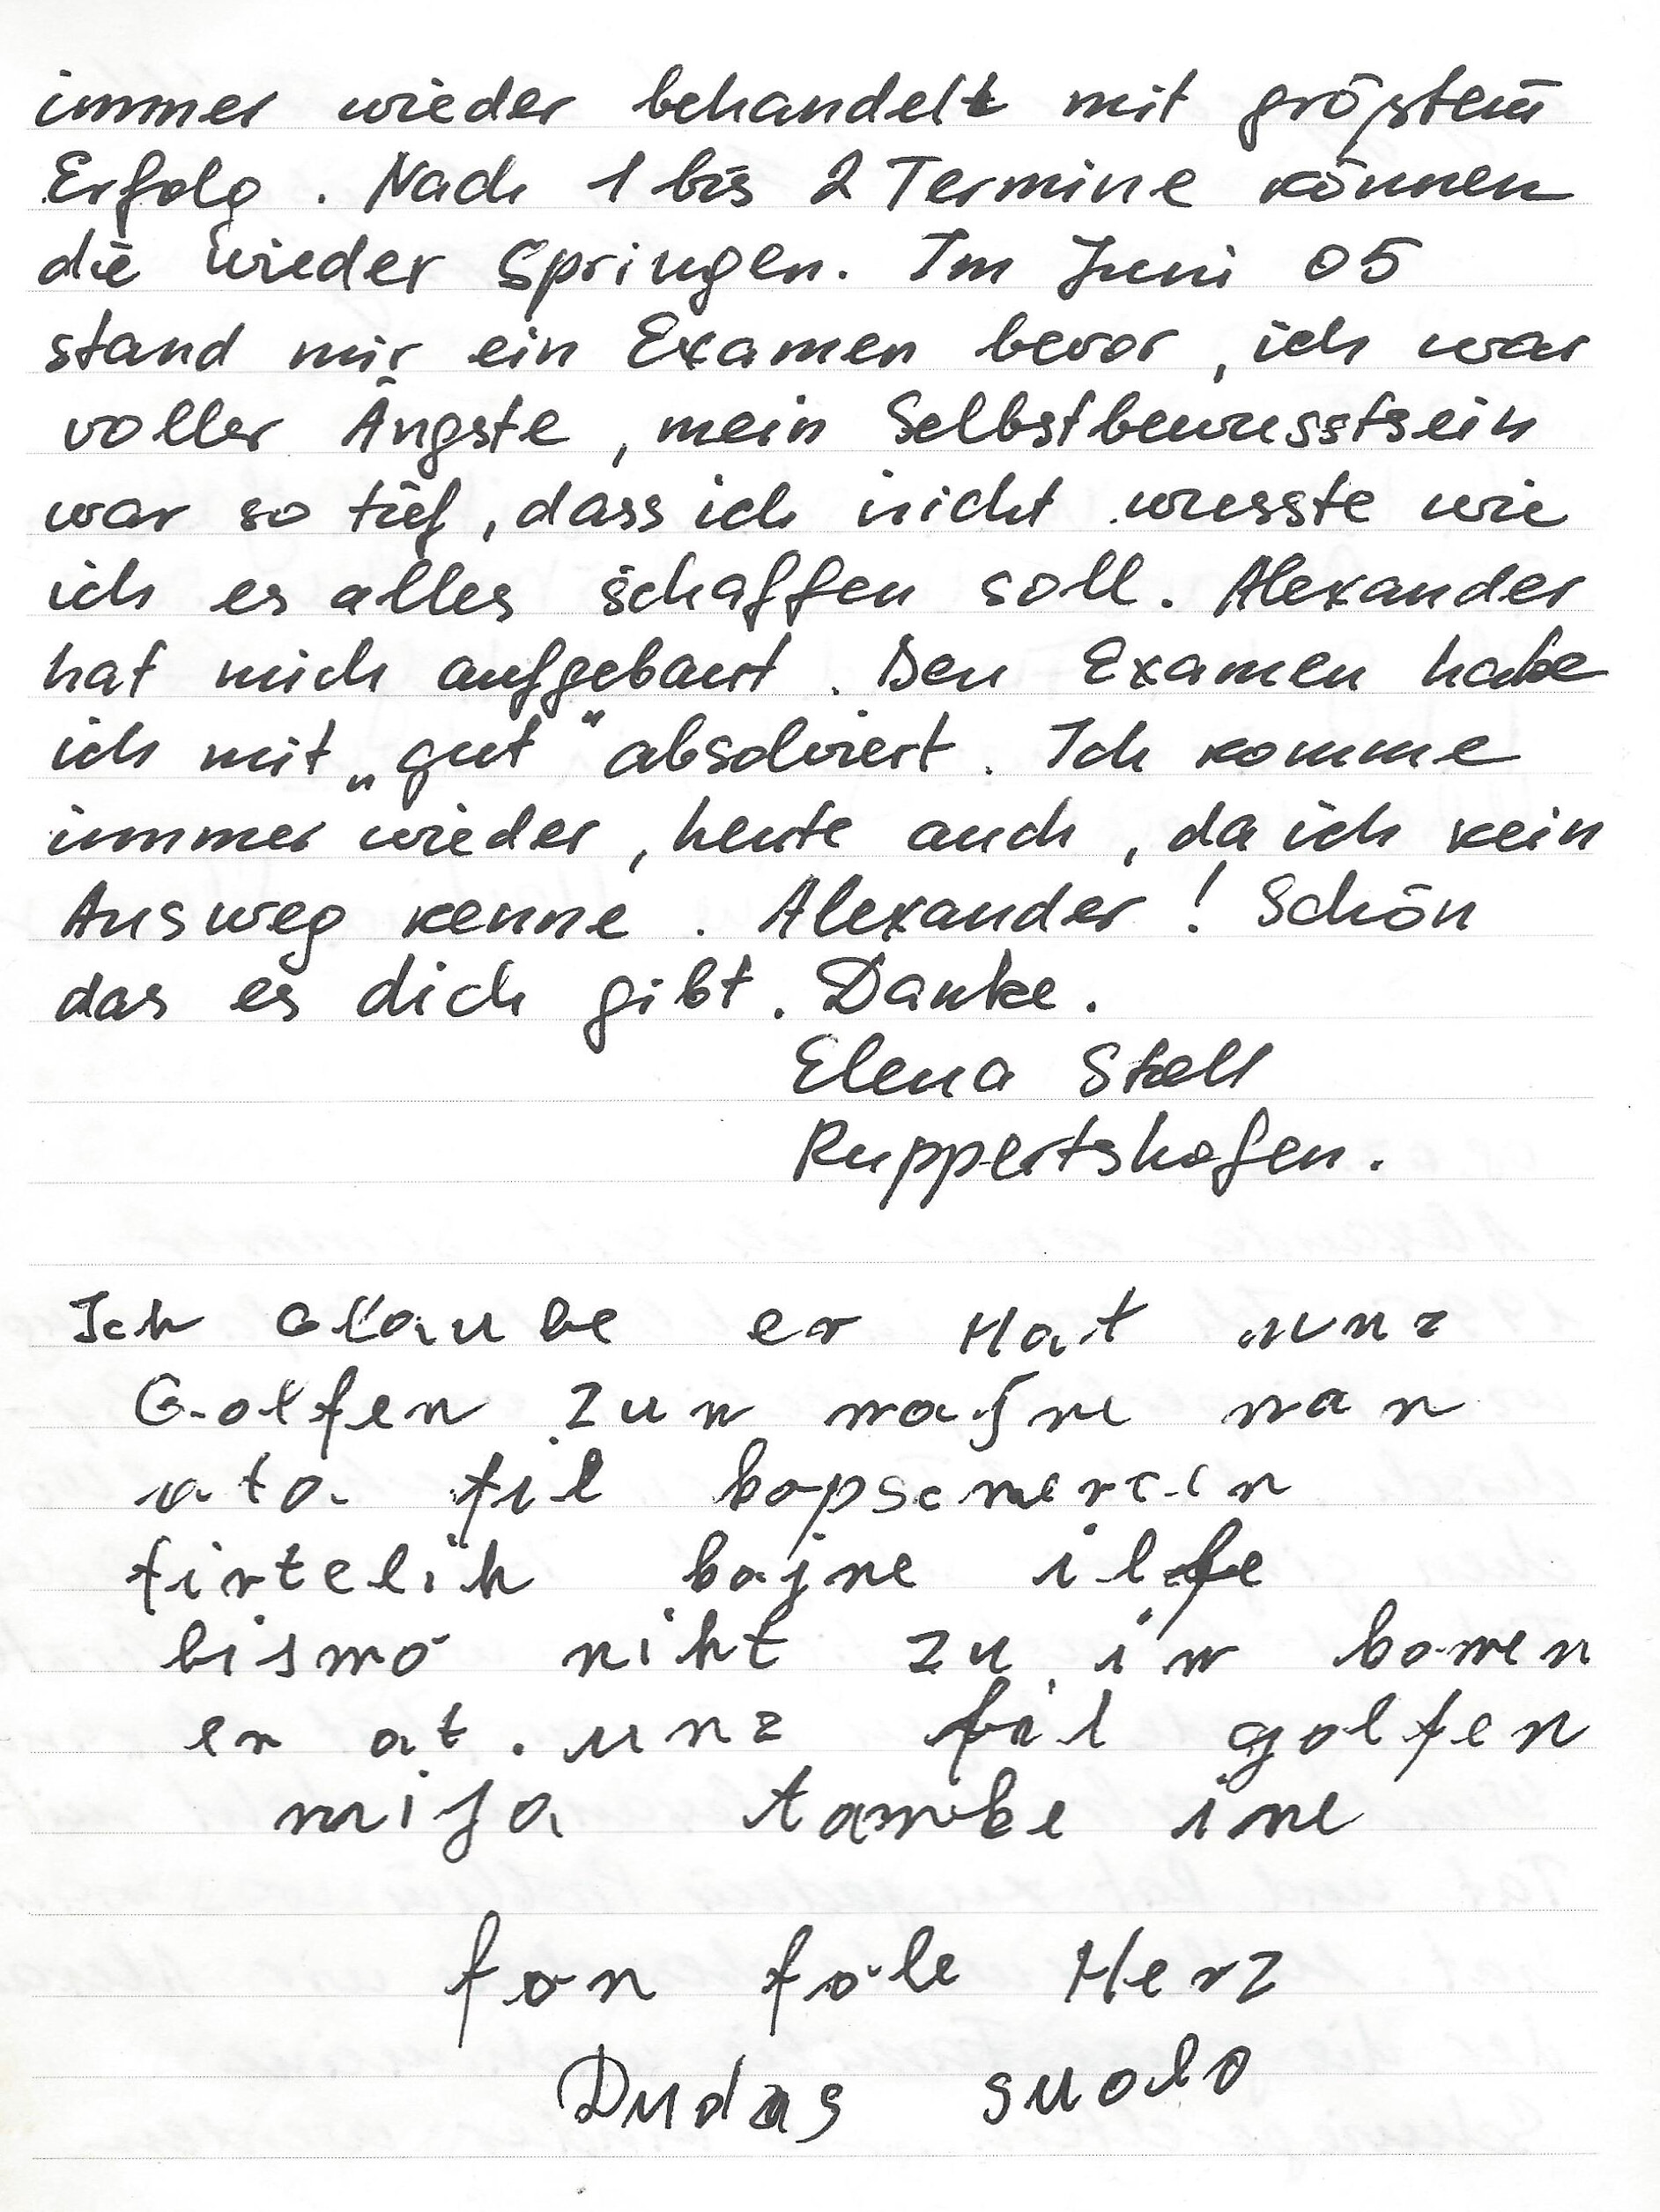 immer wieder behandelt mit größtem
Erfolg. Nach 1 bis 2 Termine können
die wieder springen. Im Juni 05
stand mir ein Examen bevor, ich war
voller Ängste, mein Selbstbewusstsein
war so tief, dass ich nicht wusste wie
ich es alles schaffen soll. Alexander
hat mich aufgebaut. Den Examen habe
ich mit „gut“ absolviert. Ich komme
immer wieder, heute auch, da ich kein
Ausweg kenne. Alexander! Schön
das es dich gibt. Danke.
Elena
Ruppertshofen.
Ich Glaube er Hat unz
Golfen zun man
fil
firtelih kajne ilfe
niht zu im
er at. unz fil golfen
ine
fon fole Herz
Dudas